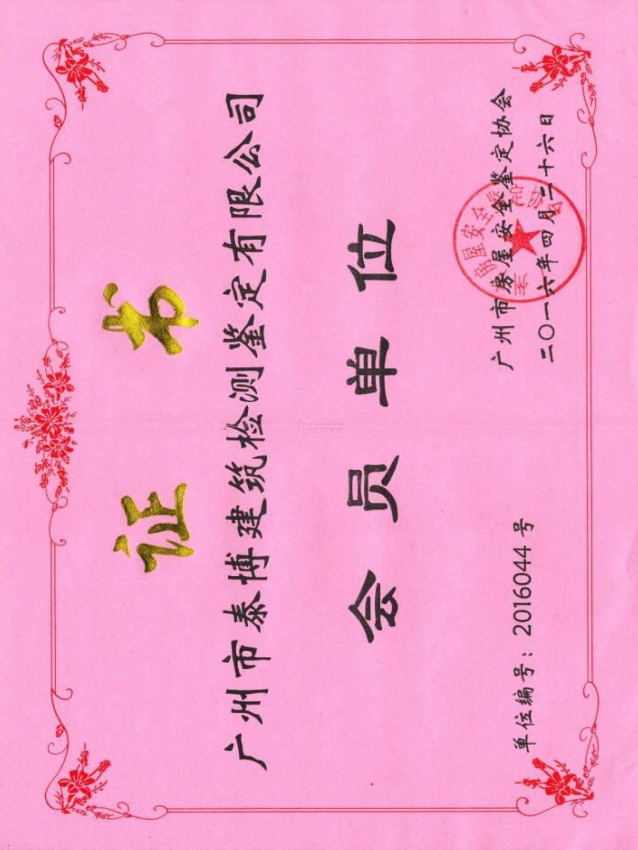 证书
广州市泰博建筑检测鉴定有限公司
会员单位
单位编号：2016044号
广州市房屋安全鉴定协会
二〇一六年四月二十六日